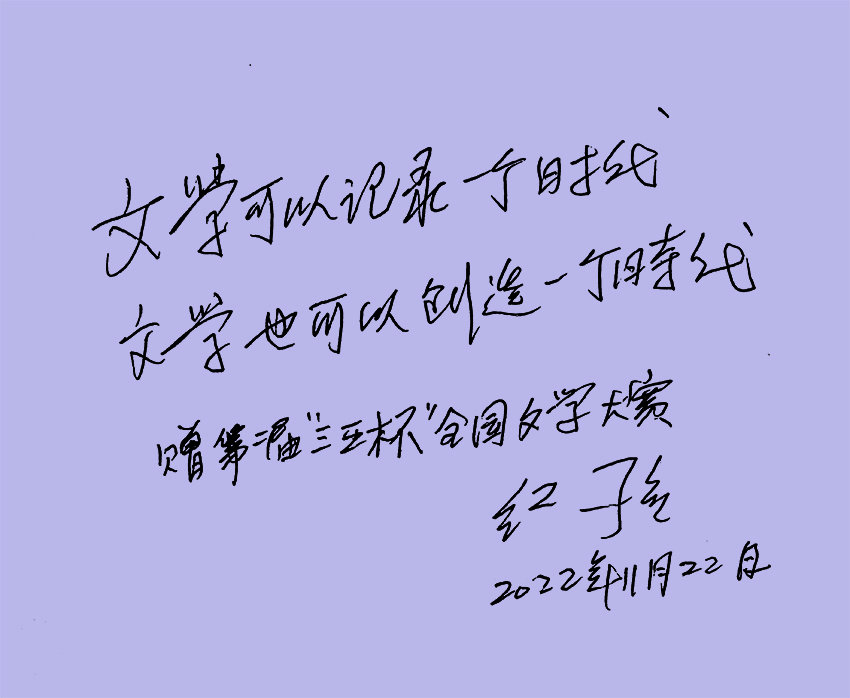 文学可以记录一个时代
文学也可以创造一个時代
赠第二届“三亚杯”全国文学大赛
红孩
2022年11月22日